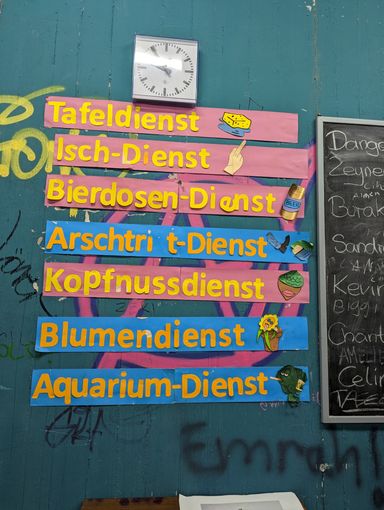 Tafeldienst
Isch-Dienst
Bierdosen-Dienst
Arschtri t-Dienst
Kopfnussdienst
Blumendienst
Aquarium-Dienst
Dange
Zeyne
Burak
Sandr
Kevin
Chant
Celin
Emrah!